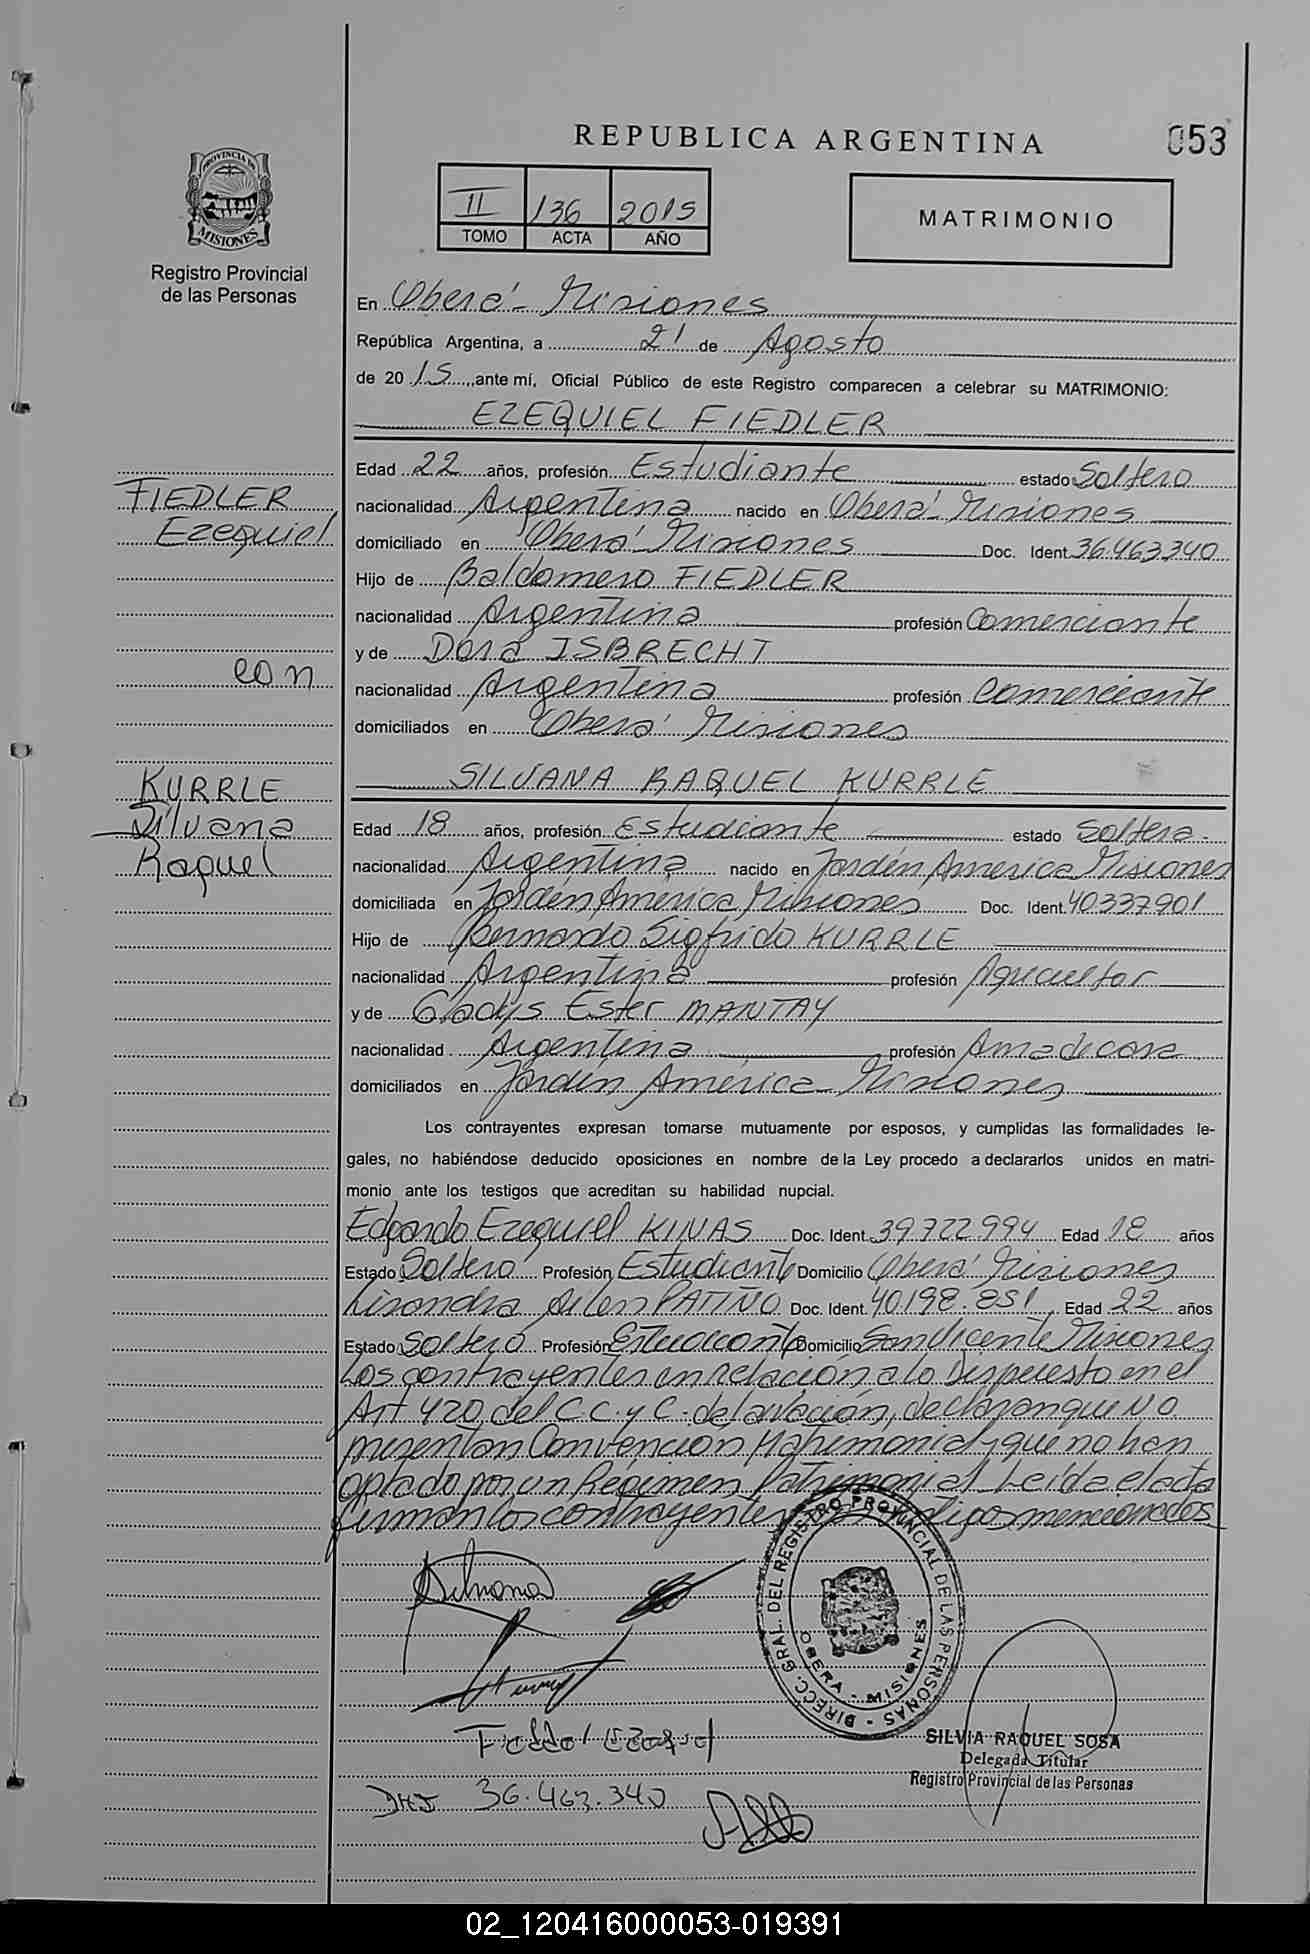 REPUBLICA ARGENTINA
053
PROVINCIA DE
MISIONES
Registro Provincial
de las Personas
II 136 2015
TOMO ACTA AÑO
MATRIMONIO
En Oberá - Misiones
República Argentina, a 21 de Agosto
de 2015, ante mí, Oficial Público de este Registro comparecen a celebrar su MATRIMONIO:
EZEQUIEL FIEDLER
Edad 22 años, profesión Estudiante estado Soltero
nacionalidad Argentina nacido en Oberá - Misiones
domiciliado en Oberá Misiones Doc. Ident. 36.463.340
Hijo de Baldomero FIEDLER
nacionalidad Argentina profesión Comerciante
y de Dora ISBRECHT
nacionalidad Argentina profesión Comerciante
domiciliados en Oberá Misiones
FIEDLER
Ezequiel
con
KURRLE
Silvana
Raquel
SILVANA RAQUEL KURRLE
Edad 18 años, profesión Estudiante estado Soltera.
nacionalidad Argentina nacido en Jardín America Misiones
domiciliada en Jardín América Misiones Doc. Ident. 40337901
Hijo de Bernardo Sigfrido KURRLE
nacionalidad Argentina profesión Agricultor
y de Gladys Ester MANTAY
nacionalidad Argentina profesión Ama de casa
domiciliados en Jardín América - Misiones
Los contrayentes expresan tomarse mutuamente por esposos, y cumplidas las formalidades le-
gales, no habiéndose deducido oposiciones en nombre de la Ley procedo a declararlos unidos en matri-
monio ante los testigos que acreditan su habilidad nupcial.
Edgardo Ezequiel KINAS Doc. Ident. 39.722.994 Edad 18 años
Estado Soltero Profesión Estudiante Domicilio Oberá Misiones
Lisandra PATIÑO Doc. Ident. 40.198.851 Edad 22 años
Estado Soltero Profesión Estudiante Domicilio San Vicente Misiones
Los contrayentes en relación a lo Dispuesto en el
Art 420 del C.C. y C. de la Nación, declaran que NO
presentan Convención Matrimonial y que no han
optado por un Regimen Patrimonial. Leída el acta
firman los contrayentes testigos mencionados
Silvana
DIRECC. GRAL. DEL REGISTRO PROVINCIAL DE LAS PERSONAS
OBERA - MISIONES
Fiedler Ezequiel
DNI 36.463.340
SILVIA RAQUEL SOSA
Delegada Titular
Registro Provincial de las Personas
02_120416000053-019391